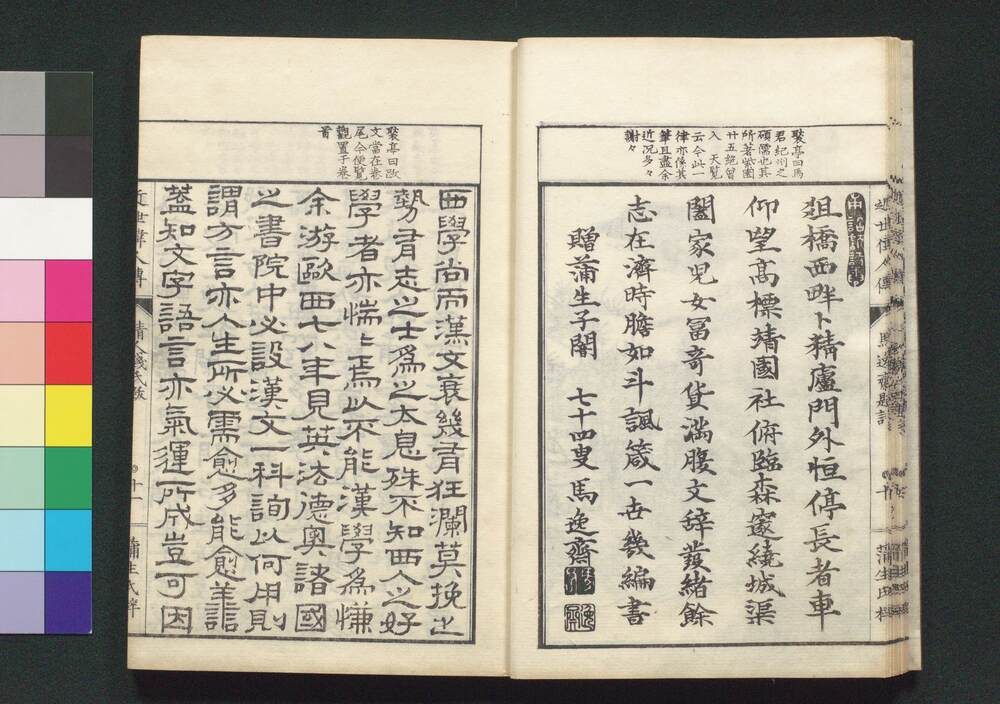 裴亭曰馬
君紀州之
碩儒也其
所著紫園
廿五絕曾
入　天覧
云今此一
律亦係其
筆且盡余
近況多々
謝々
俎橋西畔卜精廬門外恒停長者車
仰望高標靖國社俯臨森邃繞城渠
闔家兒女冨奇貨滿腹文辞發緒餘
志在濟時膽如斗諷箴一古幾編書
贈蒲生子闇　七十四叟馬逸齋
裴亭曰歐
文當在卷
尾今便覽
觀置于卷
首
西學尚而漢文衰幾有狂瀾莫挽之
勢有志之士為之太息殊不知西人之好
學者亦惴〻焉以不能漢學為慊
余游歐西七八年見英法德奧諸國
之書院中必設漢文一科詢以何用則
謂方言亦人生所必需愈多能愈美詎
蓋知文字語言亦氣運所成豈可因
近世偉人傳
十一
蒲生氏梓